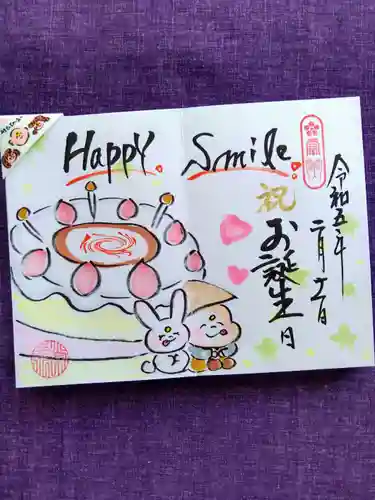 Happy Smile
令和五年
二月十一日
祝
お誕生日